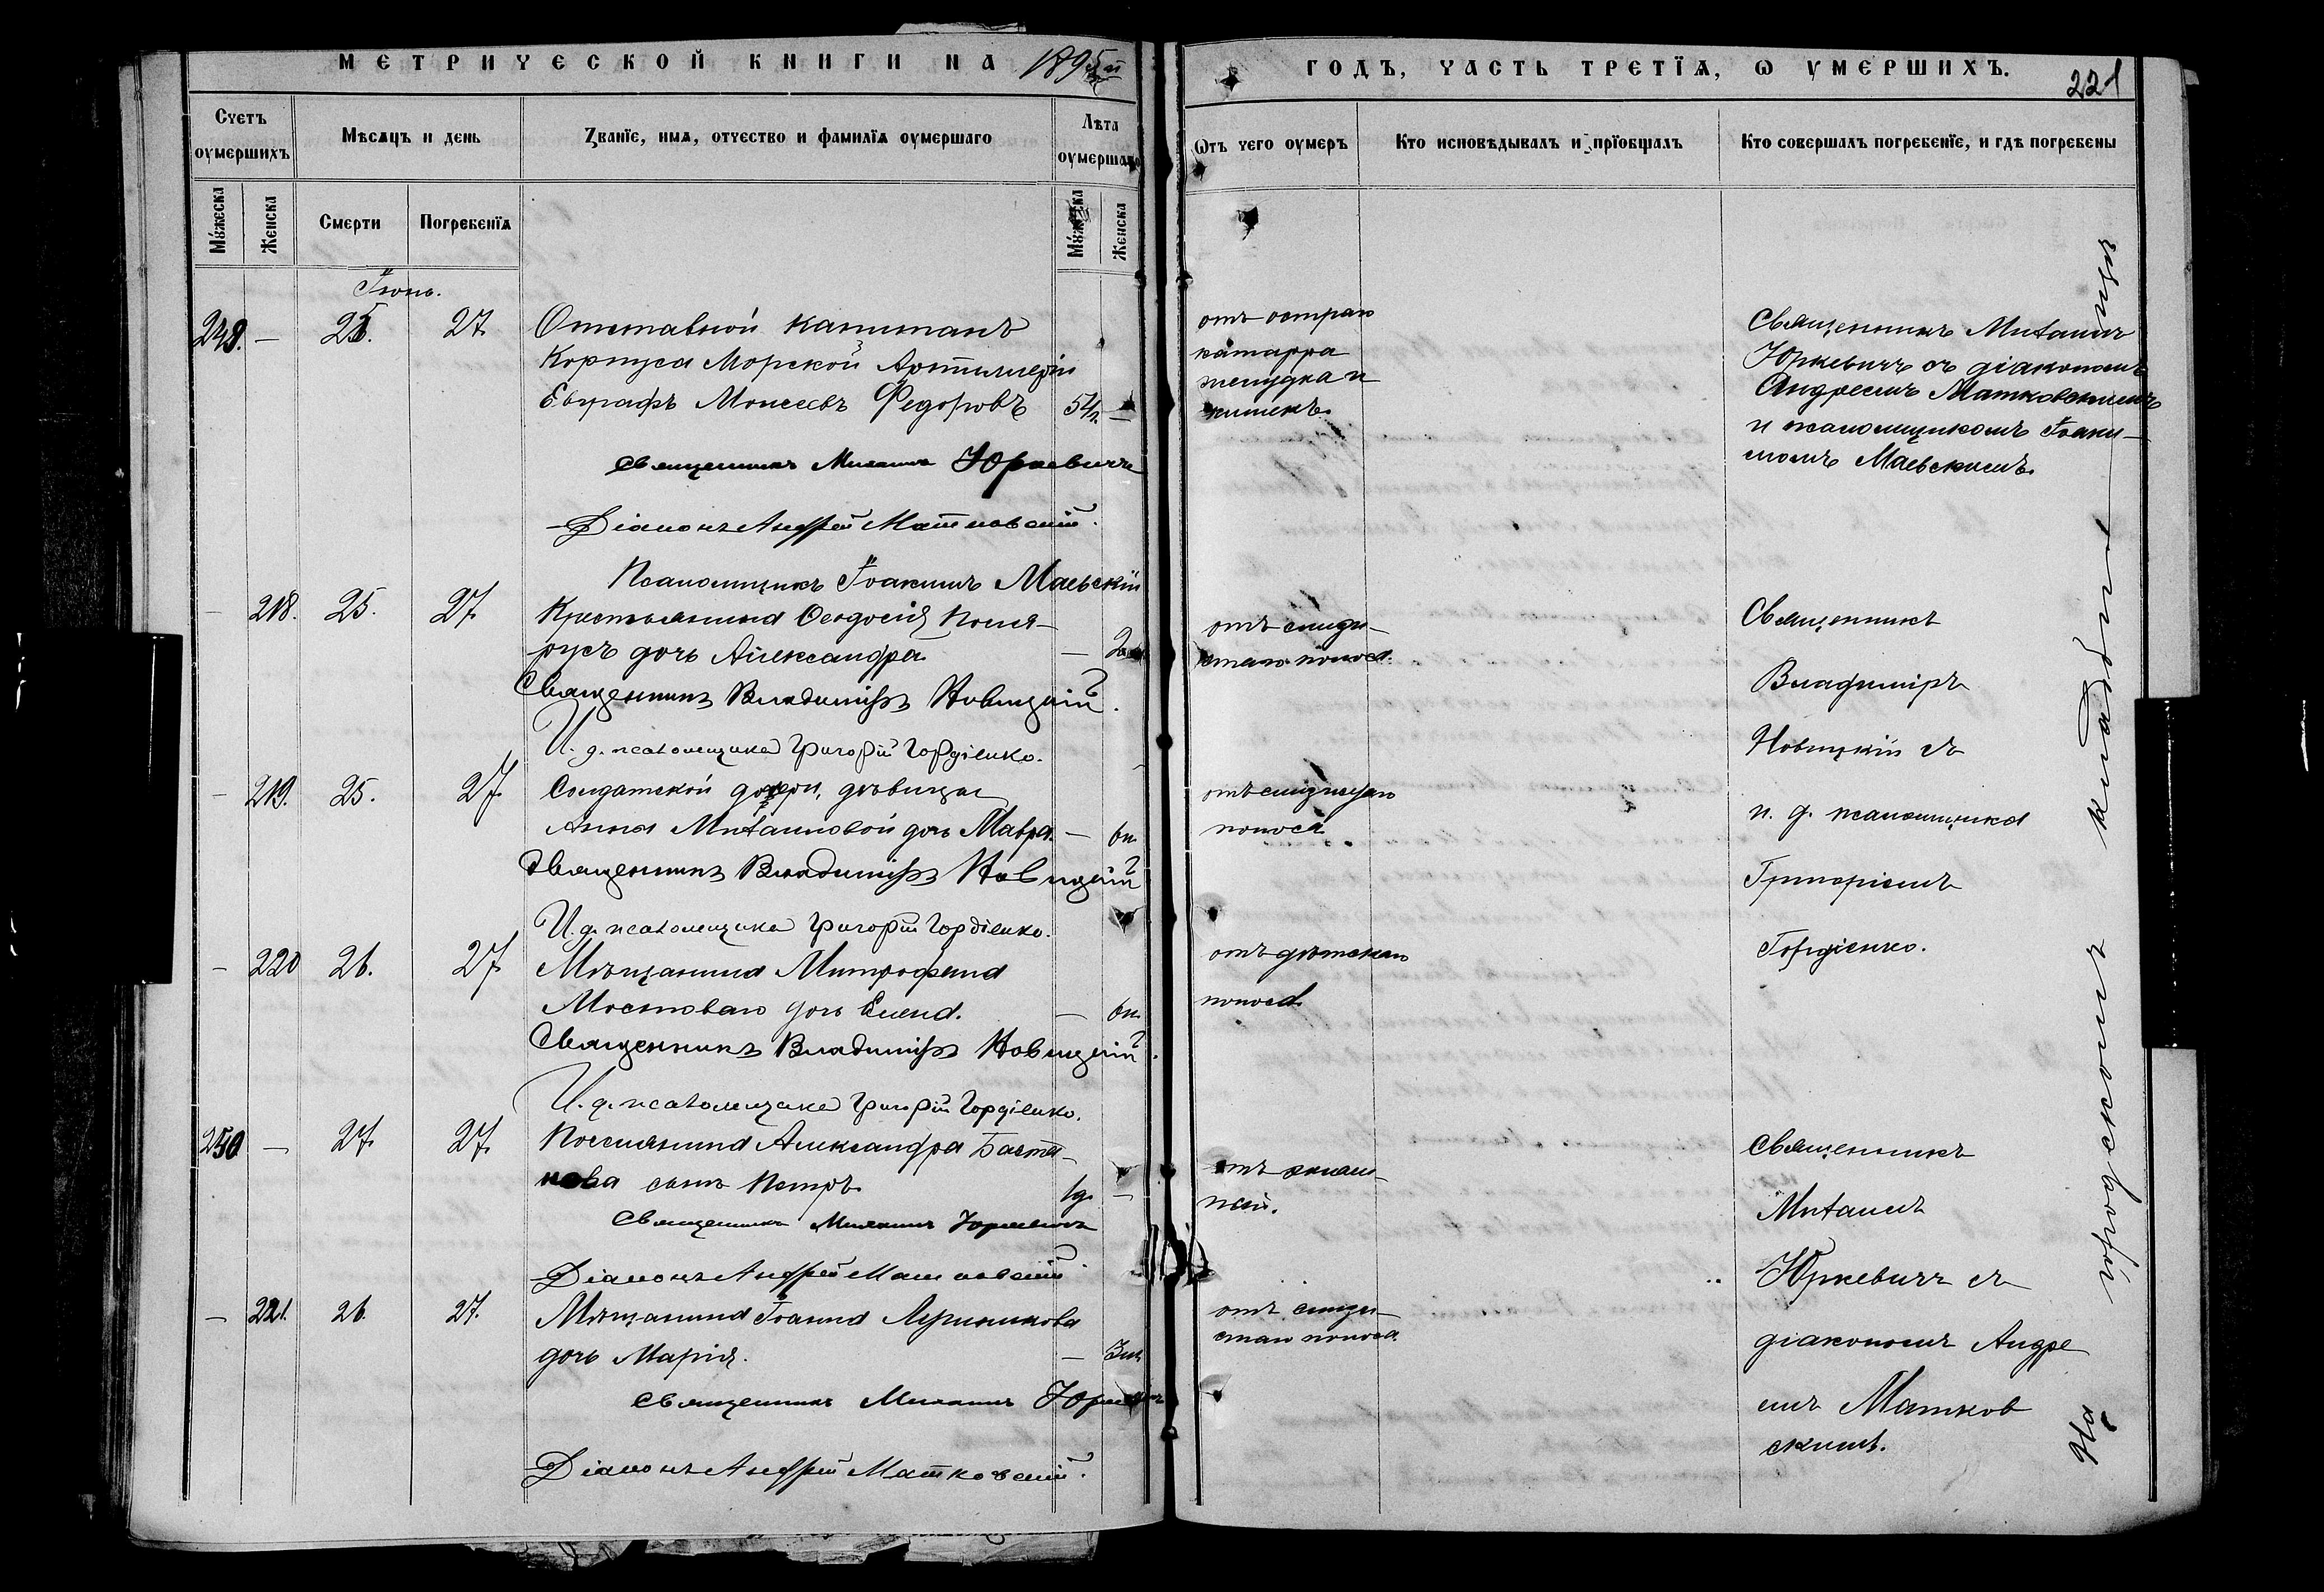 МЕТРИЧЕСКОЙ КНИГИ НА 1895й
Счетъ оумершихъ
Мѣсяцъ и день
Званїе, имя, отчество и фамилїя оумершаго
Лѣта оумершаго
Мꙋжеска
Женска
Смерти
Погребенїя
Мꙋжеска
Женска
Іюнь.
— 25. 27. Отставной капитанъ
Корпуса Морской Артиллеріи
Евграфъ Моисеевъ Федоровъ 54 —
Священникъ Михаилъ Юркевичъ
Діаконъ Андрей Матковскій.
Псаломщикъ Іоакимъ Маевскій
— 218. 25. 27. Крестьянина Ѳеодосія
дочь Александра —
Священникъ Владиміръ Новицкій.
И. д. псаломщика Григорій Гордіенко.
— 219. 25. 27. Солдатской дочери, дѣвицы
Анны Михайловой дочь Мавра — 6м.
Священникъ Владиміръ Новицкій
И. д. псаломщика Григорій Гордіенко.
— 220 26. 27. Мѣщанина Митрофана
Мостоваго дочь Елена. — 6м.
Священникъ Владиміръ Новицкій.
И. д. псаломщика Григорій Гордіенко.
250 — 27. 27. Поселянина Александра
сынъ Петръ. 1д. —
Священникъ Михаилъ Юркевичъ
Діаконъ Андрей Матковскій
— 221. 26. 27. Мѣщанина Іоанна
дочь Марія. — 3м.
Священникъ Михаилъ
Діаконъ Андрей Матковскій.
ГОДЪ, ЧАСТЬ ТРЕТЇѦ, Ѡ ОУМЕРШИХЪ.
221
Ѿтъ чего оумеръ
Кто исповѣдывалъ и прїобщалъ
Кто совершалъ погребенїе, и гдѣ погребены
отъ остраго
катарра
желудка и
кишекъ.
отъ слизи-
стаго поноса.
отъ
поноса
отъ дѣтскаго
поноса
отъ эклам-
псіи.
отъ слизи-
стаго поноса
Священникъ Михаилъ
Юркевичъ съ діакономъ
Андреемъ Матковскимъ
и псаломщикомъ Іоаки-
момъ Маевскимъ.
Священникъ
Владиміръ
Новицкій съ
и. д. псаломщика
Григоріемъ
Гордіенко.
Священникъ
Михаилъ
Юркевичъ съ
діакономъ Андре
емъ Матков
скимъ.
На городскомъ кладбищѣ